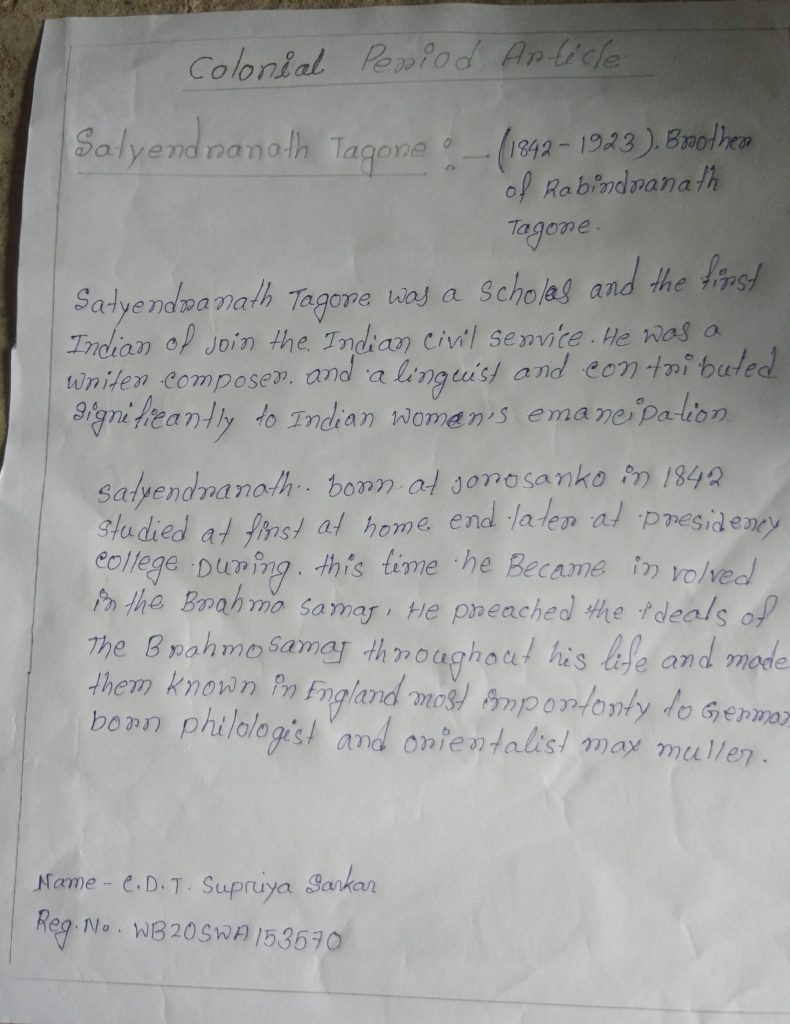 Colonial Period Article
Satyendranath Tagore :- (1842-1923). Brother
of Rabindranath
Tagore.
Satyendranath Tagore was a Scholas and the first
Indian of join the Indian civil service. He was a
writer composer. and a linguist and contributed
significantly to Indian women's emancipation
satyendranath.. born at jorosanko in 1842
studied at first at home end later at presidency
college During. this time he Became in volved
in the Brahmo samaj, He preached the ideals of
The Brahmo samaj throughout his life and made
them known in England most importonty to German
born philologist and orientalist max muller.
Name - C.D.T. Supriya Sarkar
Reg. No. WB20SWA153570